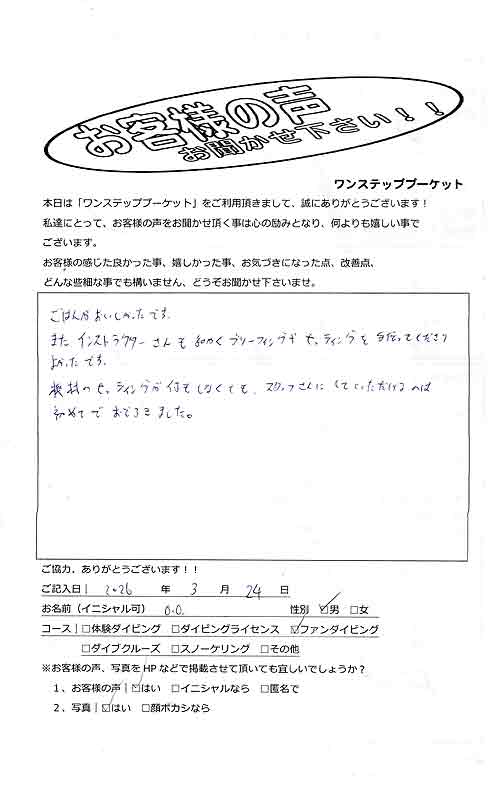 お客様の声
お聞かせ下さい！！
ワンステッププーケット
本日は「ワンステッププーケット」をご利用頂きまして、誠にありがとうございます！
私達にとって、お客様の声をお聞かせ頂く事は心の励みとなり、何よりも嬉しい事で
ございます。
お客様の感じた良かった事、嬉しかった事、お気づきになった点、改善点、
どんな些細な事でも構いません、どうぞお聞かせ下さいませ。
ごはんがおいしかったです。
また インストラクターさんも 細かく ブリーフィングや セッティングを 手伝ってくださり
よかったです。
機材のセッティングが 何もしなくても、スタッフさんに していただけるのは
初めてで おどろきました。
ご協力、ありがとうございます！！
ご記入日| 2026 年 3 月 24 日
お名前（イニシャル可） O.O. 性別 ☑男 □女
コース|□体験ダイビング □ダイビングライセンス ☑ファンダイビング
□ダイブクルーズ □スノーケリング □その他
※お客様の声、写真を HP などで掲載させて頂いても宜しいでしょうか？
１、お客様の声|☑はい □イニシャルなら □匿名で
２、写真|☑はい □顔ボカシなら